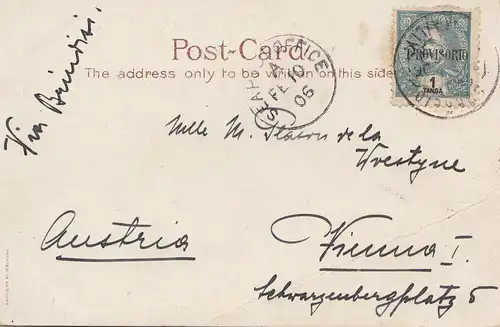 Post-Card.
The address only to be written on this side
PROVISORIO
1
TANGA
SEA POST OFFICE
A
FE 10
06
Via Brindisi
Mlle M. Slaton de la
Westyne
Austria
Vienna I.
Schwarzenbergplatz 5